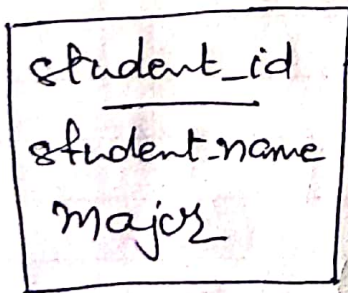 student_id
student-name
major